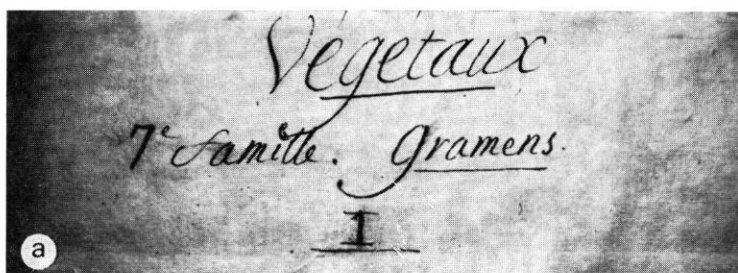 Végétaux
7e famille. Gramens.
1
a